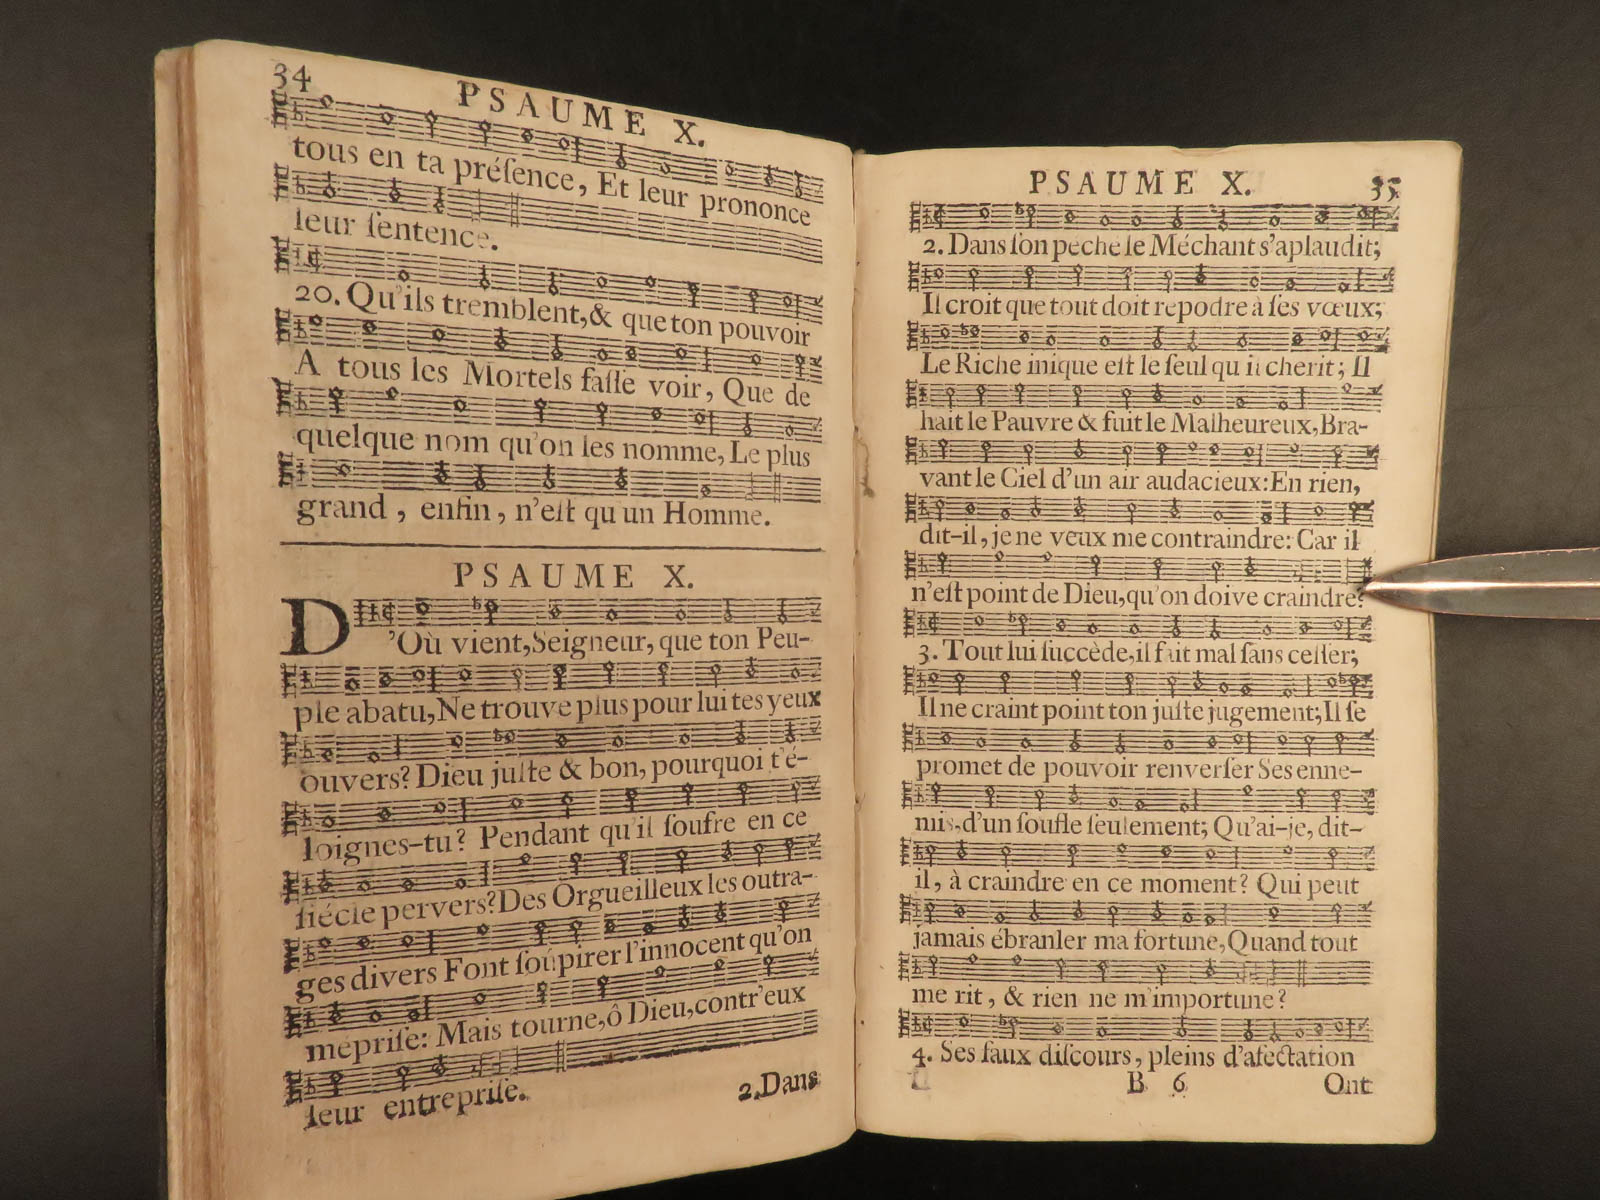 34
PSAUME X.
tous en ta préſence, Et leur prononce
leur ſentence.
20. Qu'ils tremblent, & que ton pouvoir
A tous les Mortels faſſe voir, Que de
quelque nom qu'on les nomme, Le plus
grand, enfin, n'eſt qu'un Homme.
PSAUME X.
D'Où vient, Seigneur, que ton Peu-
ple abatu, Ne trouve plus pour lui tes yeux
ouvers? Dieu juſte & bon, pourquoi t'é-
loignes-tu? Pendant qu'il ſoufre en ce
ſiécle pervers? Des Orgueilleux les outra-
ges divers Font ſoûpirer l'innocent qu'on
mépriſe: Mais tourne, ô Dieu, contr'eux
leur entrepriſe.
2. Dans
PSAUME X. 35
2. Dans ſon peché le Méchant s'aplaudit;
Il croit que tout doit répodre à ſes vœux;
Le Riche inique eſt le ſeul qu'il cherit; Il
hait le Pauvre & fuit le Malheureux, Bra-
vant le Ciel d'un air audacieux: En rien,
dit-il, je ne veux me contraindre: Car il
n'eſt point de Dieu, qu'on doive craindre?
3. Tout lui ſuccède, il fait mal ſans ceſſer;
Il ne craint point ton juſte jugement; Il ſe
promet de pouvoir renverſer Ses enne-
mis, d'un ſoufle ſeulement; Qu'ai-je, dit-
il, à craindre en ce moment? Qui peut
jamais ébranler ma fortune, Quand tout
me rit, & rien ne m'importune?
4. Ses faux diſcours, pleins d'afectation
B 6 Ont